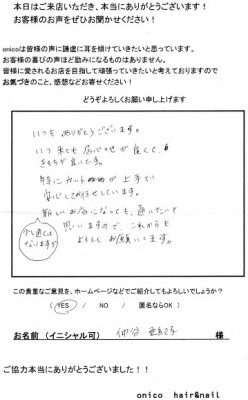 本日はご来店いただき、本当にありがとうございます！
お客様のお声をぜひお聞かせください！
onicoは皆様の声に謙虚に耳を傾けていきたいと思っています。
お客様の喜びの声ほど励みになるものはありません。
皆様に愛されるお店を目指して頑張っていきたいと考えておりますので
お気づきのこと、感想などお寄せください！
どうぞよろしくお願い申し上げます
いつも ありがとうございます。
いつ 来ても 居心地が 良くて、
きもちが良いです。
特に カット が 上手で
安心してお任せしています。
新しいお店になっても、通いたいと
思いますので、これからも
よろしく お願いします。
少し遠くは
なりますが
この貴重なご意見を、ホームページなどでご紹介してもよろしいでしょうか？
（ YES ／ NO ／ 匿名ならOK ）
お名前（イニシャル可） 仲谷 様
ご協力本当にありがとうございました！！
onico hair&nail